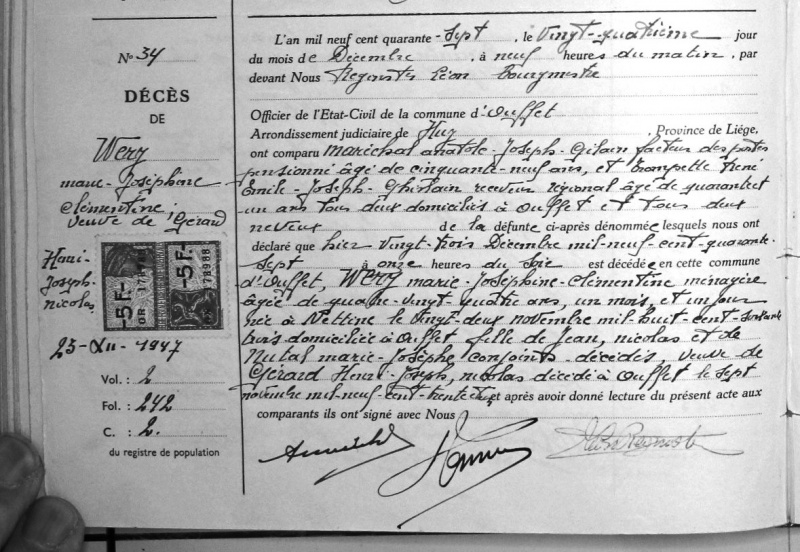 Nº 34
DÉCÈS
DE
Wery
marie-Joséphine
Clémentine.
veuve de Gérard
Henri-
Joseph-
nicolas
-5 F-
-5 F-
23-XII-1947
Vol. : 2
Fol. : 242
C. : 2.
du registre de population
L'an mil neuf cent quarante-sept, le vingt-quatrième jour
du mois de Décembre, à neuf heures du matin, par
devant Nous Regnster Léon Bourgmestre
Officier de l'Etat-Civil de la commune d'Ouffet
Arrondissement judiciaire de Huy, Province de Liége,
ont comparu maréchal anatole-Joseph-Gilain facteur des postes
pensionné âgé de cinquante-neuf ans, et Trompette René
Emile-Joseph-Ghislain receveur régional âgé de quarante et
un ans tous deux domiciliés à Ouffet et tous deux
neveux de la défunte ci-après dénommée lesquels nous ont
déclaré que hier vingt-trois Décembre mil-neuf-cent-quarante-
sept à onze heures du soir est décédée en cette commune
d'Ouffet, Wery marie-Joséphine-Clémentine ménagère
âgée de quatre-vingt quatre ans, un mois, et un jour
née à Nettine le vingt-deux novembre mil-huit-cent-soixante
trois domiciliée à Ouffet fille de Jean, nicolas et de
marie-Josèphe conjoints décédés, veuve de
Gérard Henri-Joseph, nicolas décédé à Ouffet le sept
novembre mil-neuf-cent-trente et après avoir donné lecture du présent acte aux
comparants ils ont signé avec Nous